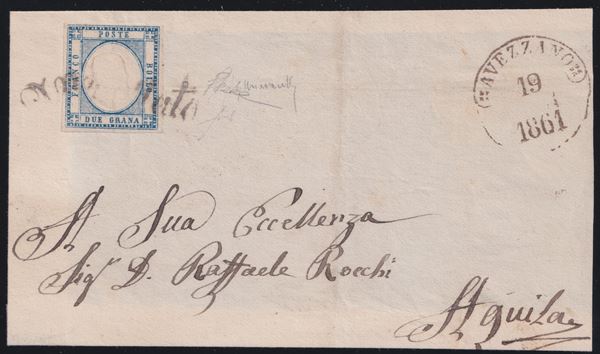 POSTE
FRANCO
BOLLO
DUE GRANA
AVEZZANO
19
1861
A Sua Eccellenza
Sigr D. Raffaele Rocchi
Aquila